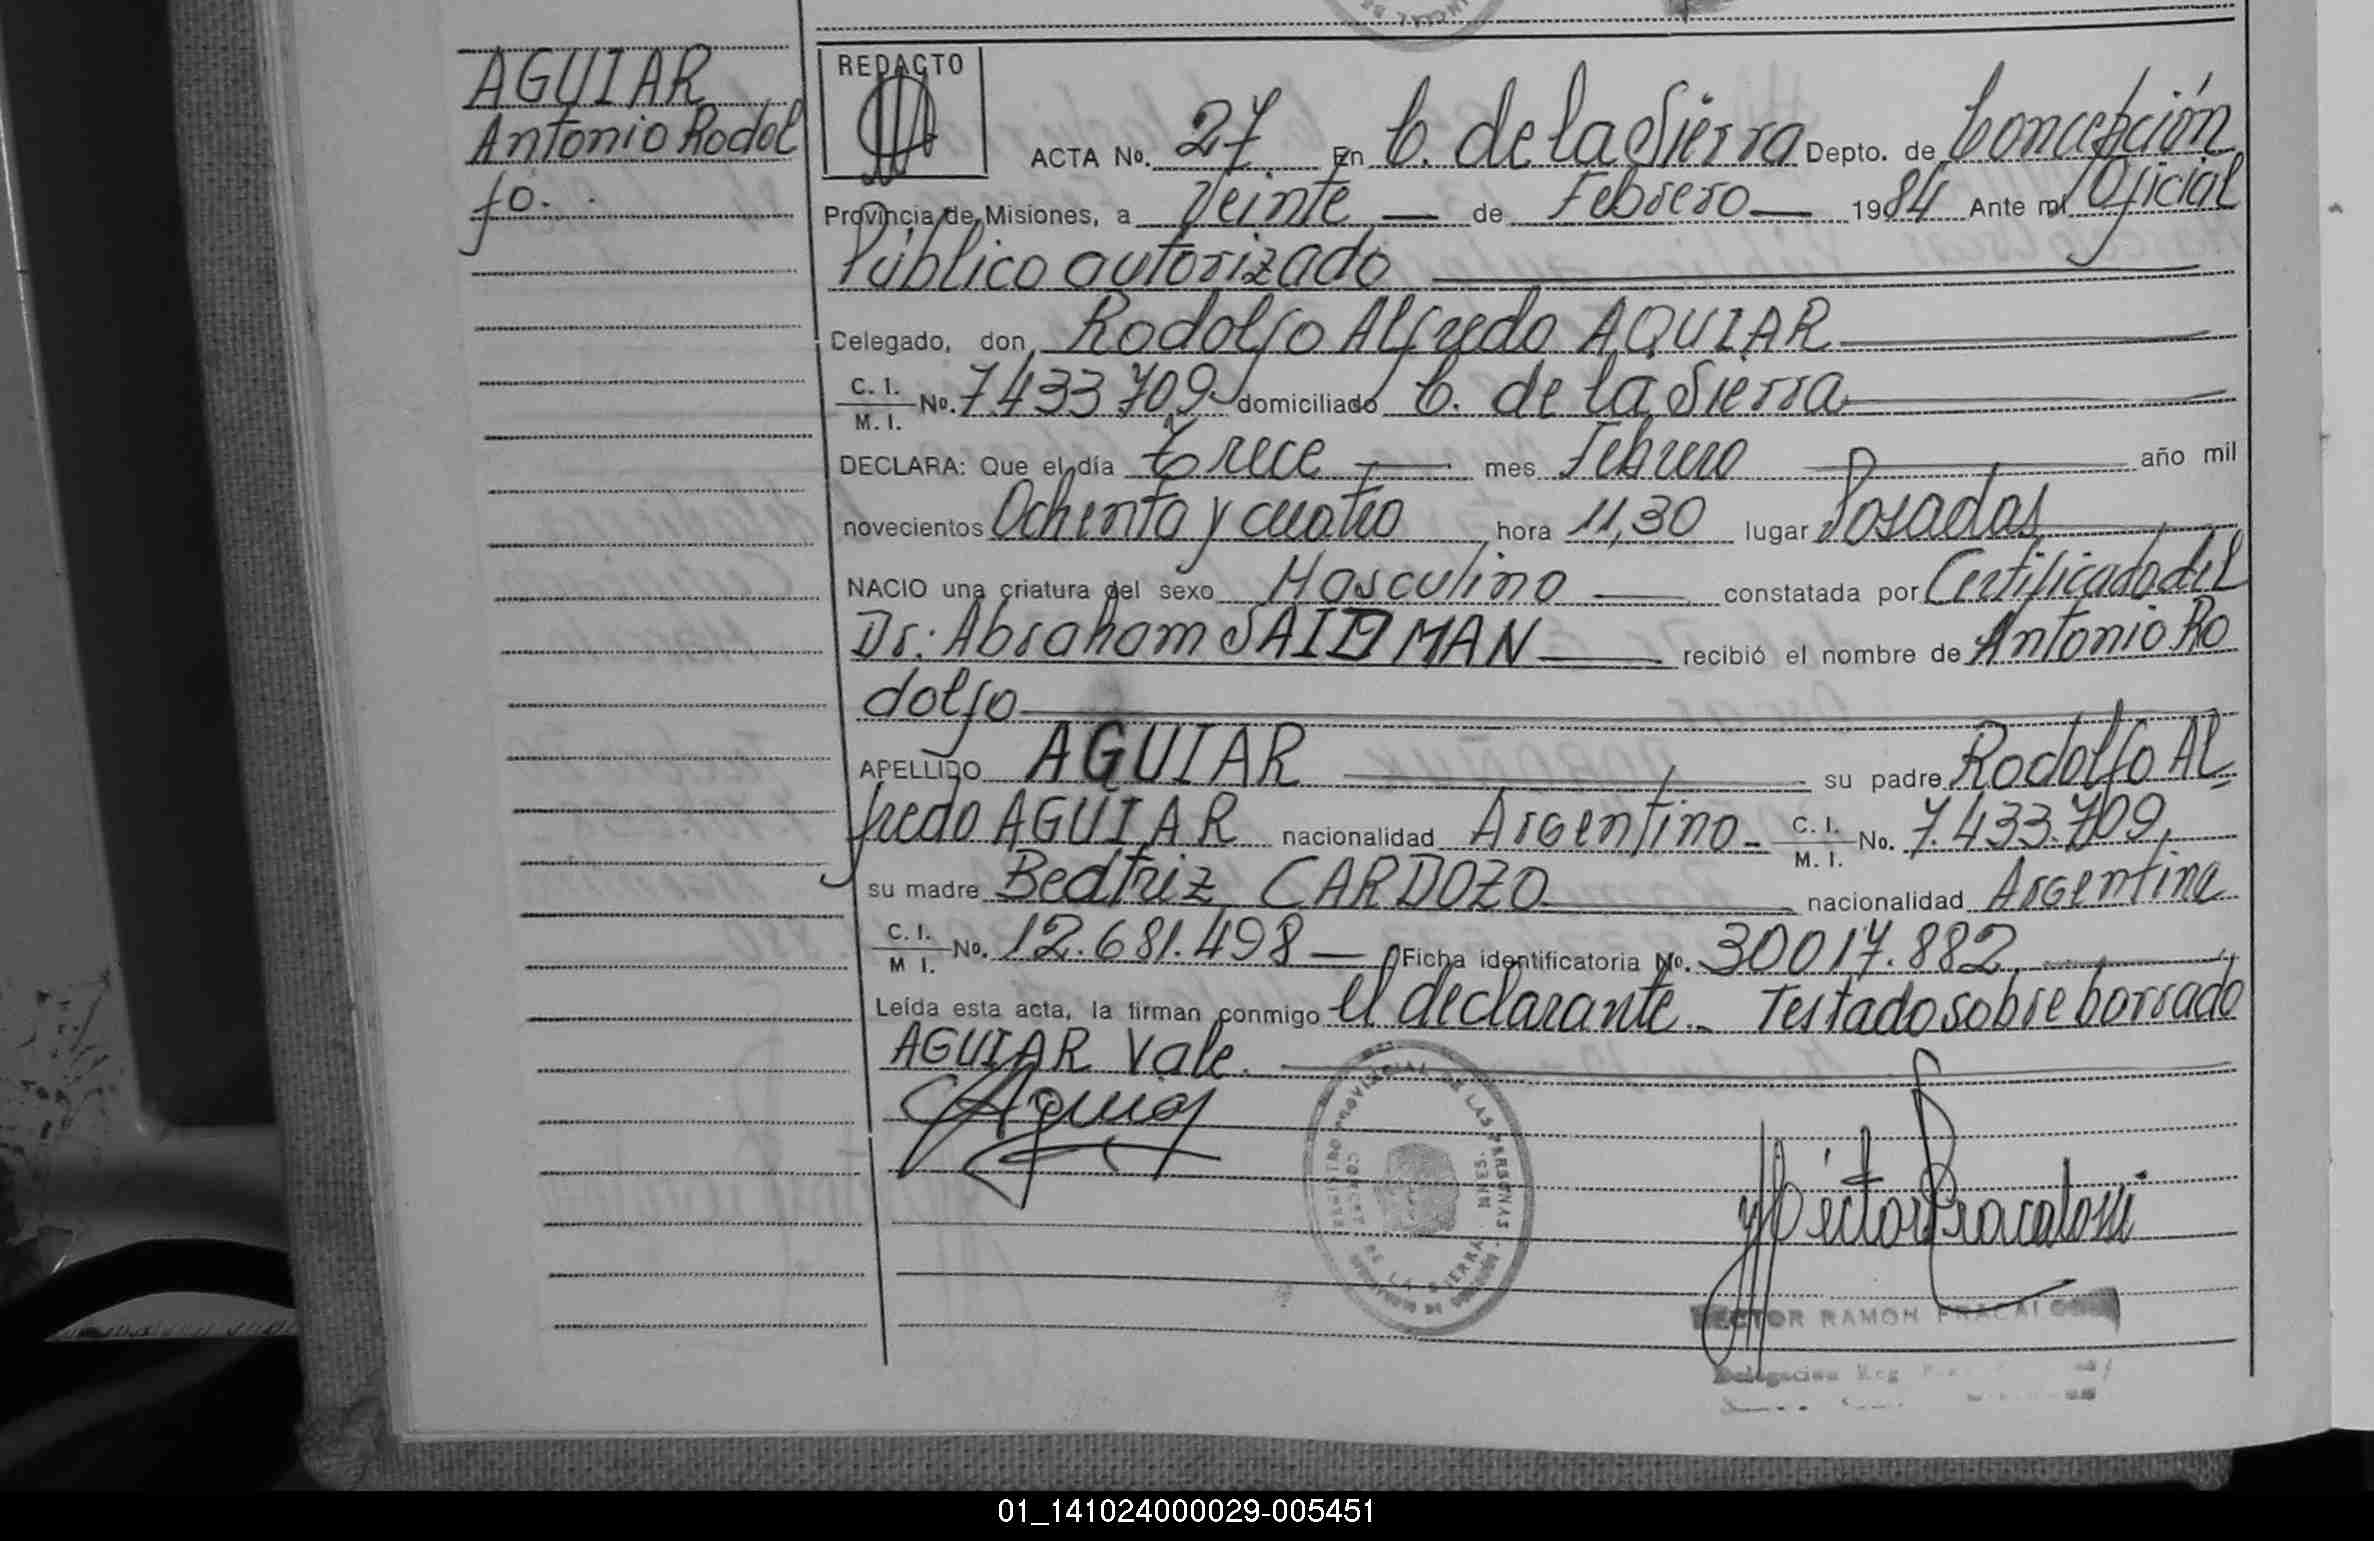 AGUIAR
Antonio Rodol
fo.
REDACTO
ACTA No. 27 En C. de la Sierra Depto. de Concepción
Provincia de Misiones, a Veinte — de Febrero — 1984 Ante mi Oficial
Público autorizado
Delegado, don Rodolfo Alfredo AGUIAR
C. I.
M. I. No. 7.433.709 domiciliado C. de la Sierra
DECLARA: Que el día trece — mes Febrero — año mil
novecientos Ochenta y cuatro hora 11,30 lugar Posadas
NACIO una criatura del sexo Masculino — constatada por Certificado del
Dr: Abraham SAIDMAN — recibió el nombre de Antonio Ro
dolfo
APELLIDO AGUIAR su padre Rodolfo Al
fredo AGUIAR nacionalidad Argentino - C. I.
M. I. No. 7.433.709,
su madre Beatriz CARDOZO nacionalidad Argentina
C. I.
M I. No. 12.681.498 — Ficha identificatoria No. 30017.882
Leída esta acta, la firman conmigo el declarante.- Testado sobre borrado
AGUIAR Vale.
Aguiar
REGISTRO PROVINCIAL DE LAS PERSONAS
DE LA SIERRA MNES.
Héctor Fracalossi
HECTOR RAMON FRACALOSSI
Delegacion Reg
01_141024000029-005451